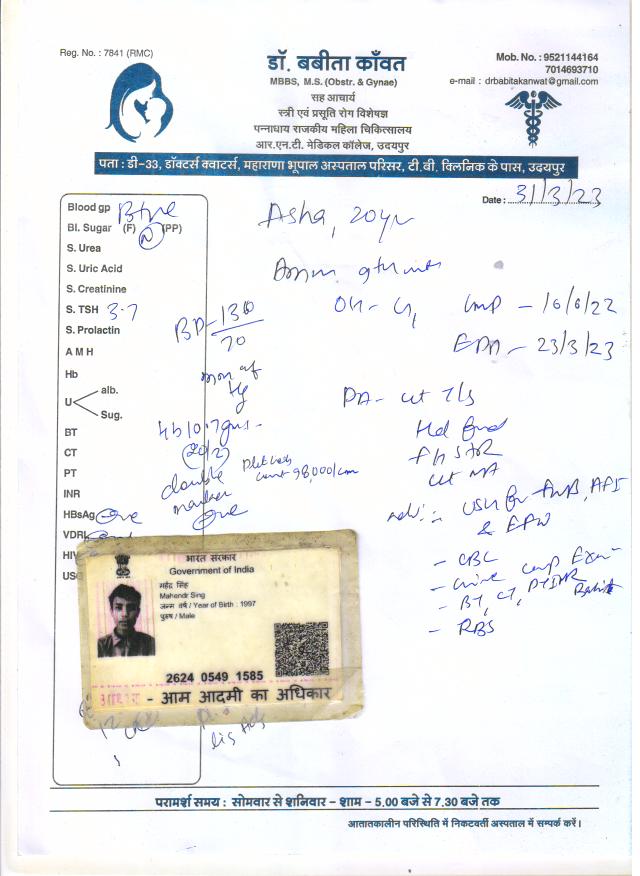 Reg. No. : 7841 (RMC)
डॉ. बबीता काँवत
MBBS, M.S. (Obstr. & Gynae)
सह आचार्य
स्त्री एवं प्रसूति रोग विशेषज्ञ
पन्नाधाय राजकीय महिला चिकित्सालय
आर.एन.टी. मेडिकल कॉलेज, उदयपुर
Mob. No. : 9521144164
7014693710
e-mail : drbabitakanwat@gmail.com
पता : डी-33, डॉक्टर्स क्वाटर्स, महाराणा भूपाल अस्पताल परिसर, टी.बी. क्लिनिक के पास, उदयपुर
Date : 31/3/23
Blood gp B+ve
Bl. Sugar (F) N (PP)
Asha, 20yr
S. Urea
S. Uric Acid
S. Creatinine
S. TSH 3.7
S. Prolactin
BP - 130/70
mm of Hg
LMP - 16/6/22
EDD - 23/3/23
A M H
Hb
U alb.
Sug.
BT
CT
PT
INR
HBsAg
VDRL
HIV
USG
Hb 10.7gm
double marker
count 98,000/cm
PA - ut T/s
FHSR
adv :- USG for FWB, AFI
& EFW
- CBC
- Urine Comp Exam
- BT, CT, PT INR
- RBS
भारत सरकार
Government of India
महेंद्र सिंह
Mahendr Sing
जन्म वर्ष / Year of Birth : 1997
पुरुष / Male
2624 0549 1585
आधार - आम आदमी का अधिकार
परामर्श समय : सोमवार से शनिवार - शाम - 5.00 बजे से 7.30 बजे तक
आतातकालीन परिस्थिति में निकटवर्ती अस्पताल में सम्पर्क करें।